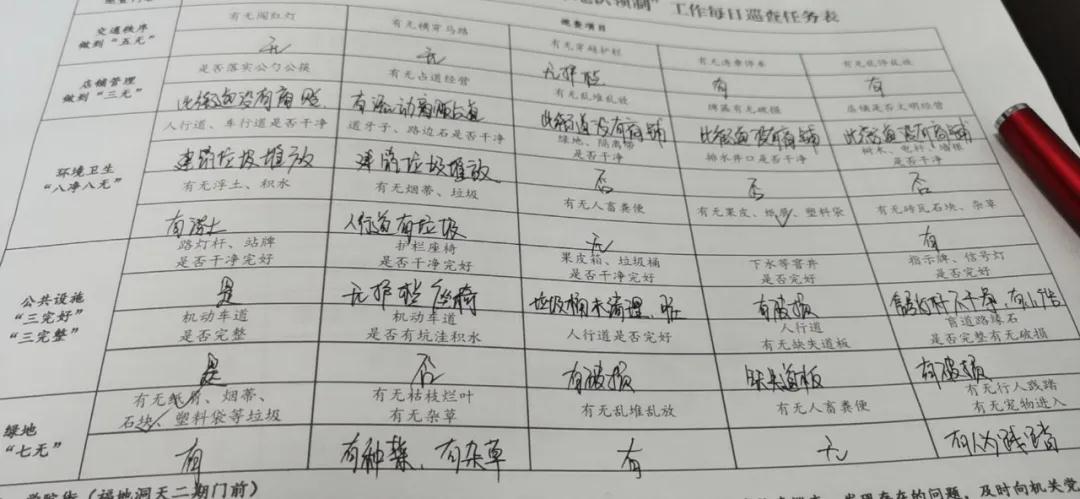 工作每日巡查任务表
巡查项目
交通秩序
做到“五无”
有无闯红灯
有无横穿马路
有无穿越护栏
有无违章停车
有无乱停乱放
无
无
无护栏
有
有
店铺管理
做到“三无”
是否落实公勺公筷
有无占道经营
有无乱堆乱放
牌匾有无破损
店铺是否文明经营
此街道没有商铺
有流动商贩占道
此街道没有商铺
此街道没有商铺
此街道没有商铺
环境卫生
“八净八无”
人行道、车行道是否干净
道牙子、路边石是否干净
绿地、隔离带
是否干净
排水井口是否干净
树木、电杆、墙根
是否干净
建筑垃圾堆放
建筑垃圾堆放
否
否
否
有无浮土、积水
有无烟蒂、垃圾
有无人畜粪便
有无果皮、纸屑、塑料袋
有无砖瓦石块、杂草
有浮土
人行道有垃圾
无
有
公共设施
“三完好”
“三完整”
路灯杆、站牌
是否干净完好
护栏座椅
是否干净完好
果皮箱、垃圾桶
是否干净完好
下水等窨井
是否完好
指示牌、信号灯
是否干净完好
是
无护栏座椅
垃圾桶未清理、脏
有破损
信号灯杆不干净,有小广告
机动车道
是否完整
机动车道
是否有坑洼积水
人行道是否完好
人行道
有无缺失道板
盲道路缘石
是否完整有无破损
是
否
有破损
缺失道板
有破损
绿地
“七无”
有无纸屑、烟蒂、
石块、塑料袋等垃圾
有无枯枝烂叶
有无杂草
有无乱堆乱放
有无人畜粪便
有无行人践踏
有无宠物进入
有
有种菜、有杂草
有
无
有人为践踏
学院街(福地洞天二期门前)
发现存在的问题,及时向机关党